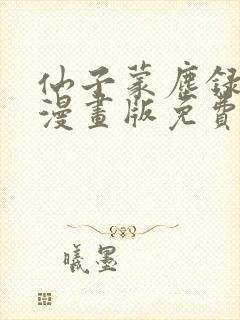 仙子蒙塵録
漫畫版免費
曦墨